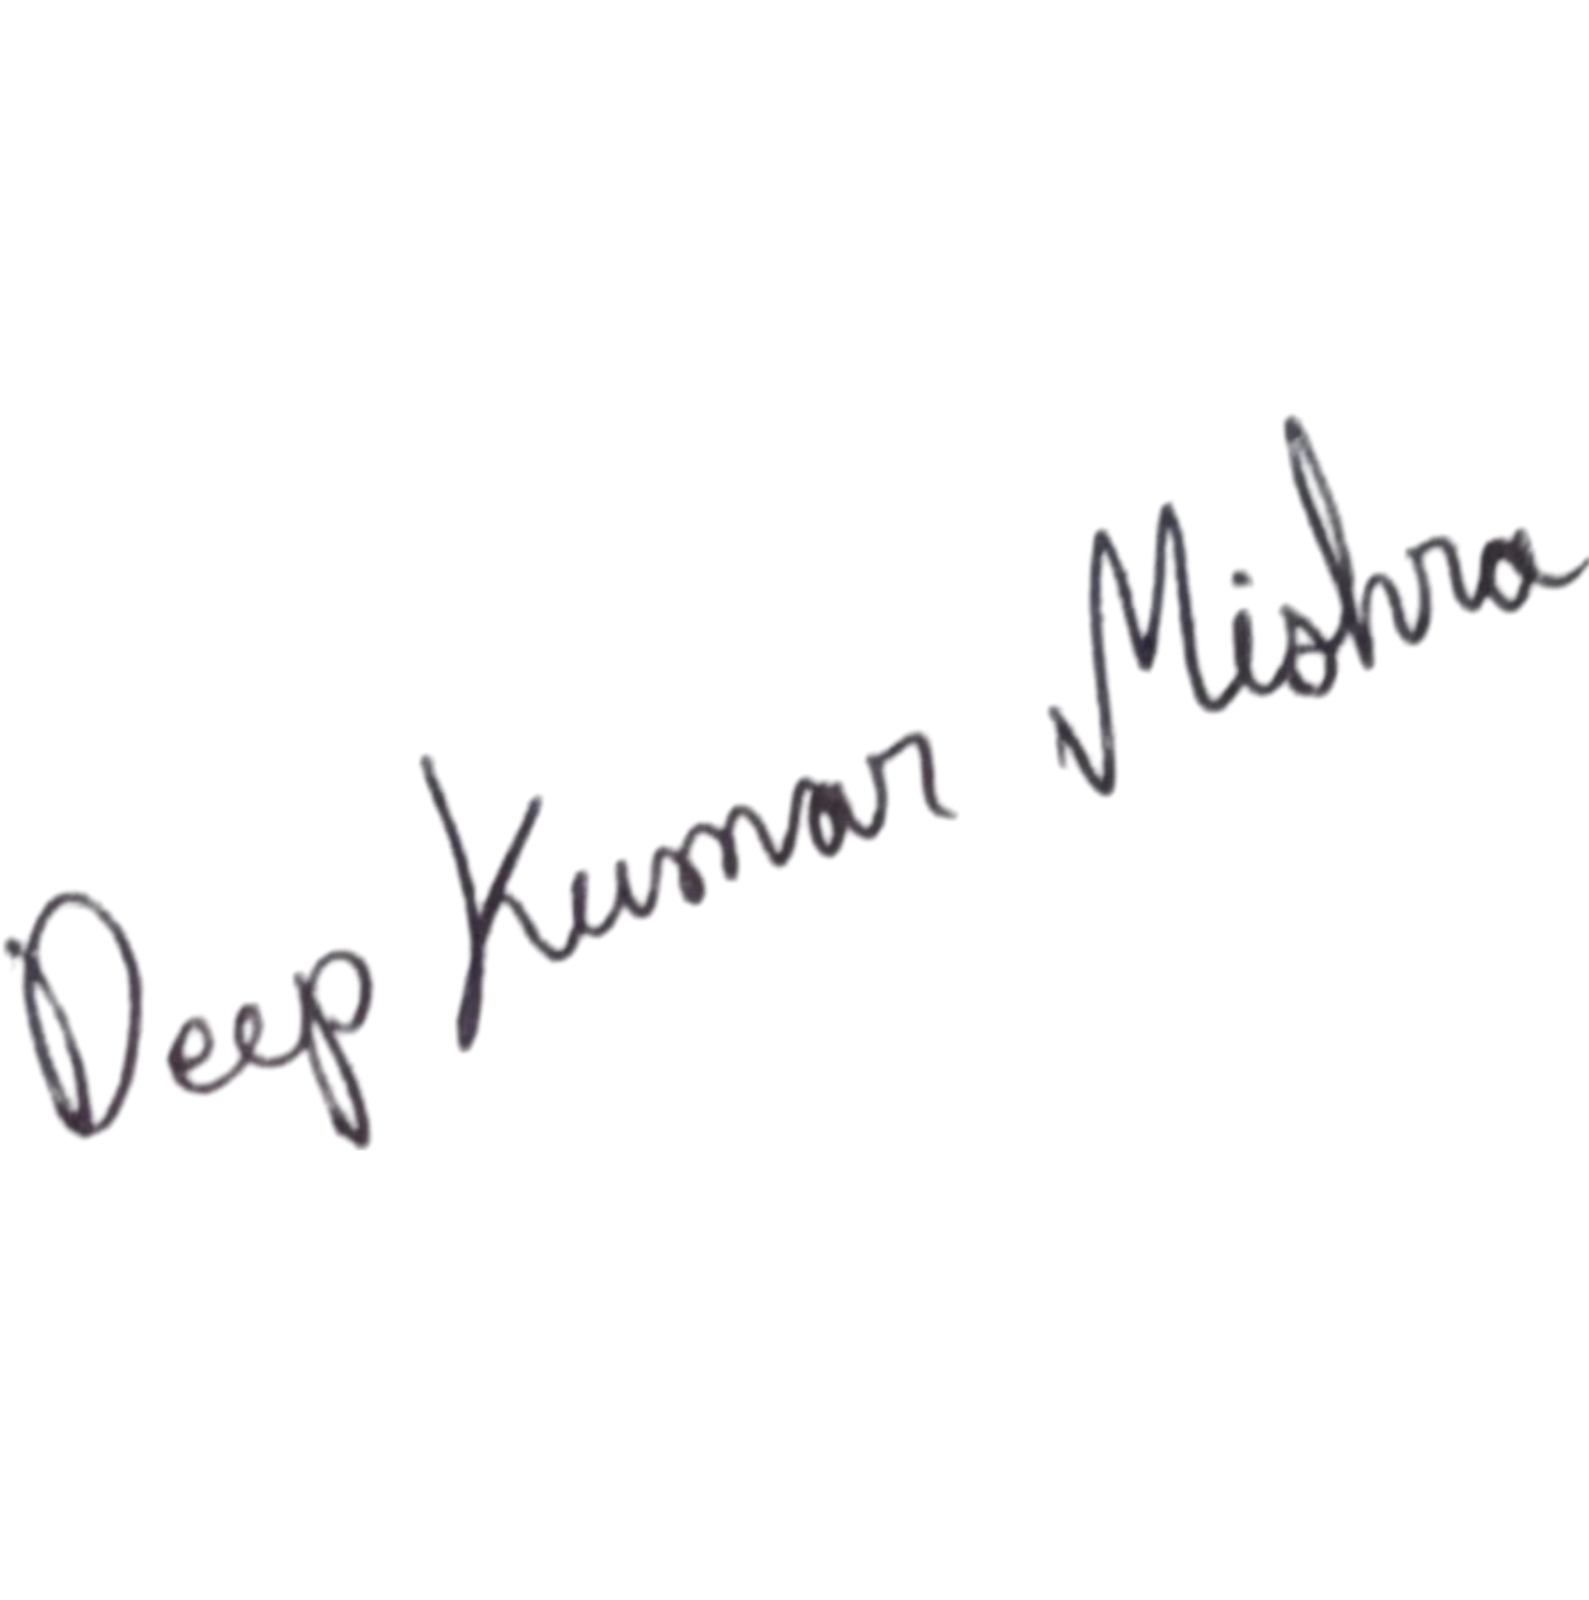 Deep Kumar Mishra